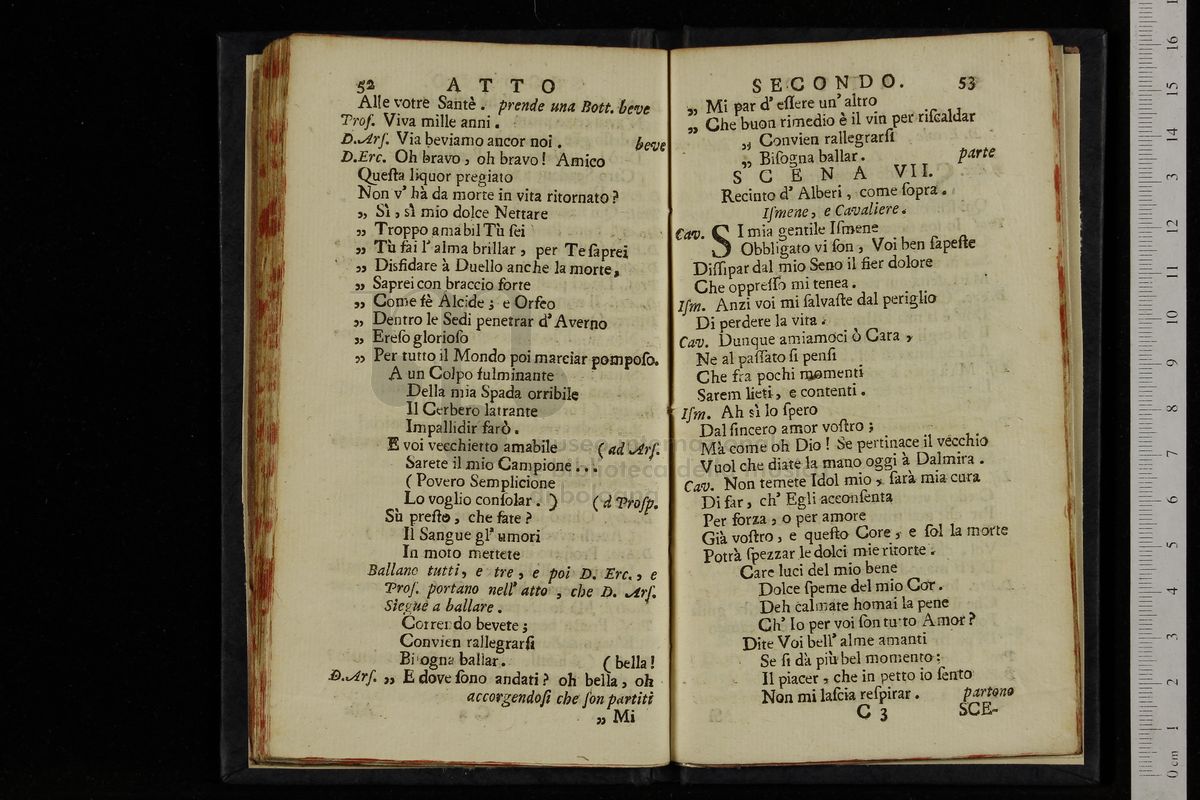 52 A T T O
Alle votre Santè . prende una Bott. beve
Prof. Viva mille anni .
D.Arſ. Via beviamo ancor noi . beve
D.Erc. Oh bravo , oh bravo ! Amico
Queſta liquor pregiato
Non v' hà da morte in vita ritornato ?
„ Sì , sì mio dolce Nettare
„ Troppo amabil Tù ſei
„ Tù fai l' alma brillar , per Te ſaprei
„ Disfidare à Duello anche la morte,
„ Saprei con braccio forte
„ Come fè Alcide ; e Orfeo
„ Dentro le Sedi penetrar d' Averno
„ Ereſo glorioſo
„ Per tutto il Mondo poi marciar pompoſo.
A un Colpo fulminante
Della mia Spada orribile
Il Cerbero latrante
Impallidir farò .
E voi vecchietto amabile ( ad Arſ.
Sarete il mio Campione . . .
( Povero Semplicione
Lo voglio conſolar . ) ( a Proſp.
Sù preſto , che fate ?
Il Sangue gl' umori
In moto mettete
Ballano tutti, e tre , e poi D. Erc. , e
Proſ. portano nell' atto , che D. Arſ.
Siegue a ballare .
Correndo bevete ;
Convien rallegrarſi
Biſogna ballar . ( bella !
D.Arſ. „ E dove ſono andati ? oh bella , oh
accorgendoſi che ſon partiti
„ Mi
SECONDO. 53
„ Mi par d' eſſere un' altro
„ Che buon rimedio è il vin per riſcaldar
„ Convien rallegrarſi
„ Biſogna ballar . parte
S C E N A VII.
Recinto d' Alberi , come ſopra .
Iſmene, e Cavaliere .
Cav. SI mia gentile Iſmene
Obbligato vi ſon , Voi ben ſapeſte
Diſſipar dal mio Seno il fier dolore
Che oppreſſo mi tenea .
Iſm. Anzi voi mi ſalvaſte dal periglio
Di perdere la vita .
Cav. Dunque amiamoci ò Cara ,
Ne al paſſato ſi penſi
Che fra pochi momenti
Sarem lieti , e contenti .
Iſm. Ah sì lo ſpero
Dal ſincero amor voſtro ;
Mà come oh Dio ! Se pertinace il vecchio
Vuol che diate la mano oggi à Dalmira .
Cav. Non temete Idol mio , ſarà mia cura
Di far , ch' Egli acconſenta
Per forza , o per amore
Già voſtro , e queſto Core , e ſol la morte
Potrà ſpezzar le dolci mie ritorte .
Care luci del mio bene
Dolce ſpeme del mio Cor .
Deh calmate homai la pene
Ch' Io per voi ſon tutto Amor ?
Dite Voi bell' alme amanti
Se ſi dà più bel momento :
Il piacer , che in petto io ſento
Non mi laſcia reſpirar . partono
C 3 SCE-